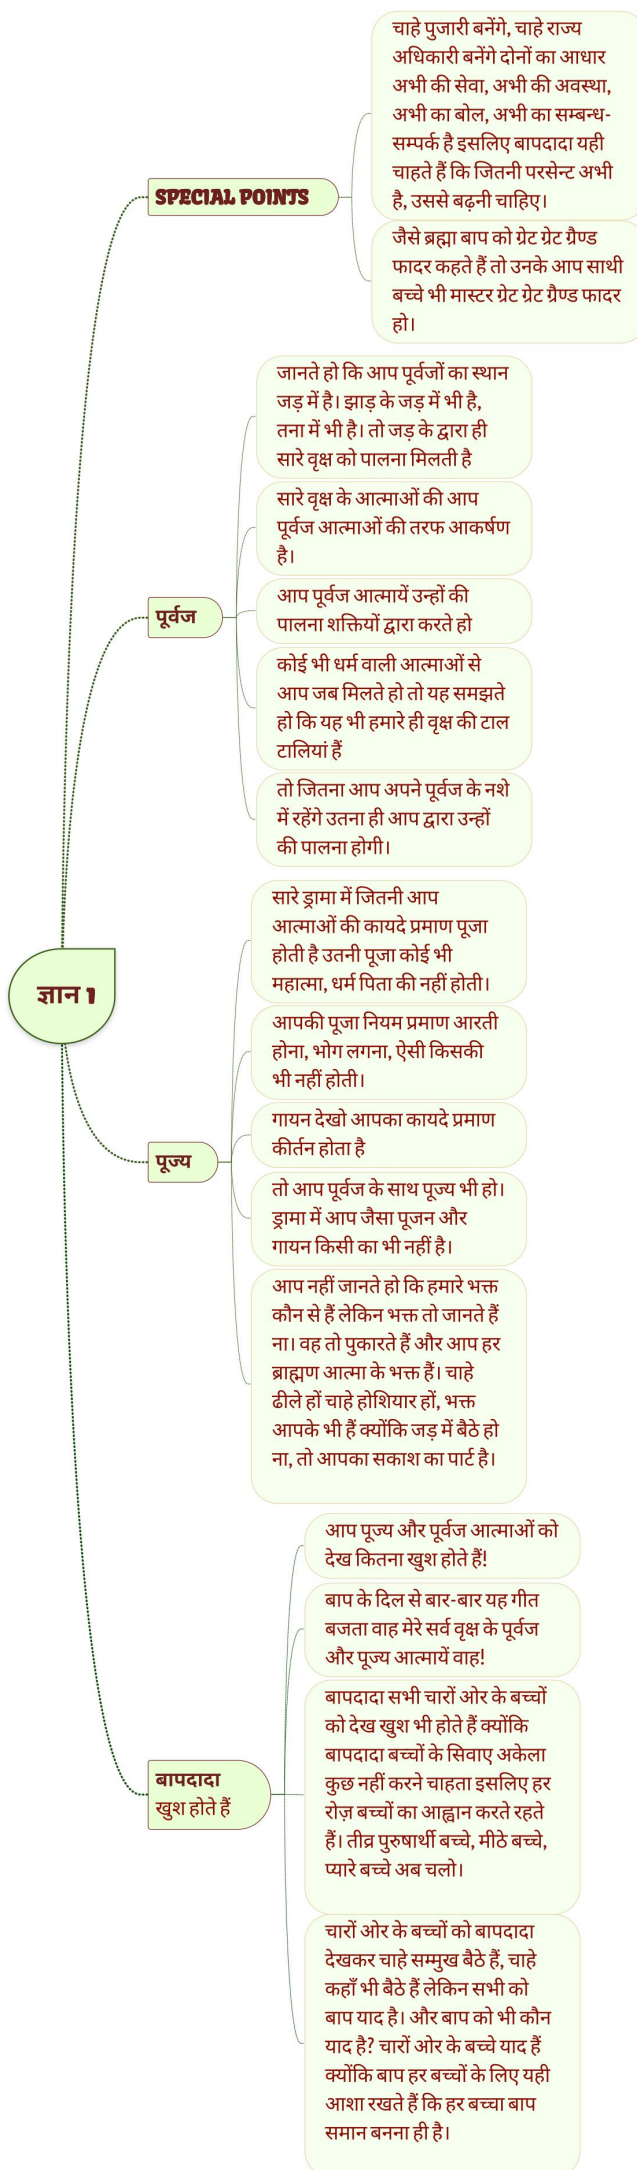 चाहे पुजारी बनेंगे, चाहे राज्य
अधिकारी बनेंगे दोनों का आधार
अभी की सेवा, अभी की अवस्था,
अभी का बोल, अभी का सम्बन्ध-
सम्पर्क है इसलिए बापदादा यही
चाहते हैं कि जितनी परसेन्ट अभी
है, उससे बढ़नी चाहिए।
SPECIAL POINTS
जैसे ब्रह्मा बाप को ग्रेट ग्रेट ग्रैण्ड
फादर कहते हैं तो उनके आप साथी
बच्चे भी मास्टर ग्रेट ग्रेट ग्रैण्ड फादर
हो।
जानते हो कि आप पूर्वजों का स्थान
जड़ में है। झाड़ के जड़ में भी है,
तना में भी है। तो जड़ के द्वारा ही
सारे वृक्ष को पालना मिलती है
सारे वृक्ष के आत्माओं की आप
पूर्वज आत्माओं की तरफ आकर्षण
है।
पूर्वज
आप पूर्वज आत्मायें उन्हों की
पालना शक्तियों द्वारा करते हो
कोई भी धर्म वाली आत्माओं से
आप जब मिलते हो तो यह समझते
हो कि यह भी हमारे ही वृक्ष की टाल
टालियां हैं
तो जितना आप अपने पूर्वज के नशे
में रहेंगे उतना ही आप द्वारा उन्हों
की पालना होगी।
ज्ञान 1
सारे ड्रामा में जितनी आप
आत्माओं की कायदे प्रमाण पूजा
होती है उतनी पूजा कोई भी
महात्मा, धर्म पिता की नहीं होती।
आपकी पूजा नियम प्रमाण आरती
होना, भोग लगना, ऐसी किसकी
भी नहीं होती।
गायन देखो आपका कायदे प्रमाण
कीर्तन होता है
पूज्य
तो आप पूर्वज के साथ पूज्य भी हो।
ड्रामा में आप जैसा पूजन और
गायन किसी का भी नहीं है।
आप नहीं जानते हो कि हमारे भक्त
कौन से हैं लेकिन भक्त तो जानते हैं
ना। वह तो पुकारते हैं और आप हर
ब्राह्मण आत्मा के भक्त हैं। चाहे
ढीले हों चाहे होशियार हों, भक्त
आपके भी हैं क्योंकि जड़ में बैठे हो
ना, तो आपका सकाश का पार्ट है।
आप पूज्य और पूर्वज आत्माओं को
देख कितना खुश होते हैं!
बाप के दिल से बार-बार यह गीत
बजता वाह मेरे सर्व वृक्ष के पूर्वज
और पूज्य आत्मायें वाह!
बापदादा
खुश होते हैं
बापदादा सभी चारों ओर के बच्चों
को देख खुश भी होते हैं क्योंकि
बापदादा बच्चों के सिवाए अकेला
कुछ नहीं करने चाहता इसलिए हर
रोज़ बच्चों का आह्वान करते रहते
हैं। तीव्र पुरुषार्थी बच्चे, मीठे बच्चे,
प्यारे बच्चे अब चलो।
चारों ओर के बच्चों को बापदादा
देखकर चाहे सम्मुख बैठे हैं, चाहे
कहाँ भी बैठे हैं लेकिन सभी को
बाप याद है। और बाप को भी कौन
याद है? चारों ओर के बच्चे याद हैं
क्योंकि बाप हर बच्चों के लिए यही
आशा रखते हैं कि हर बच्चा बाप
समान बनना ही है।